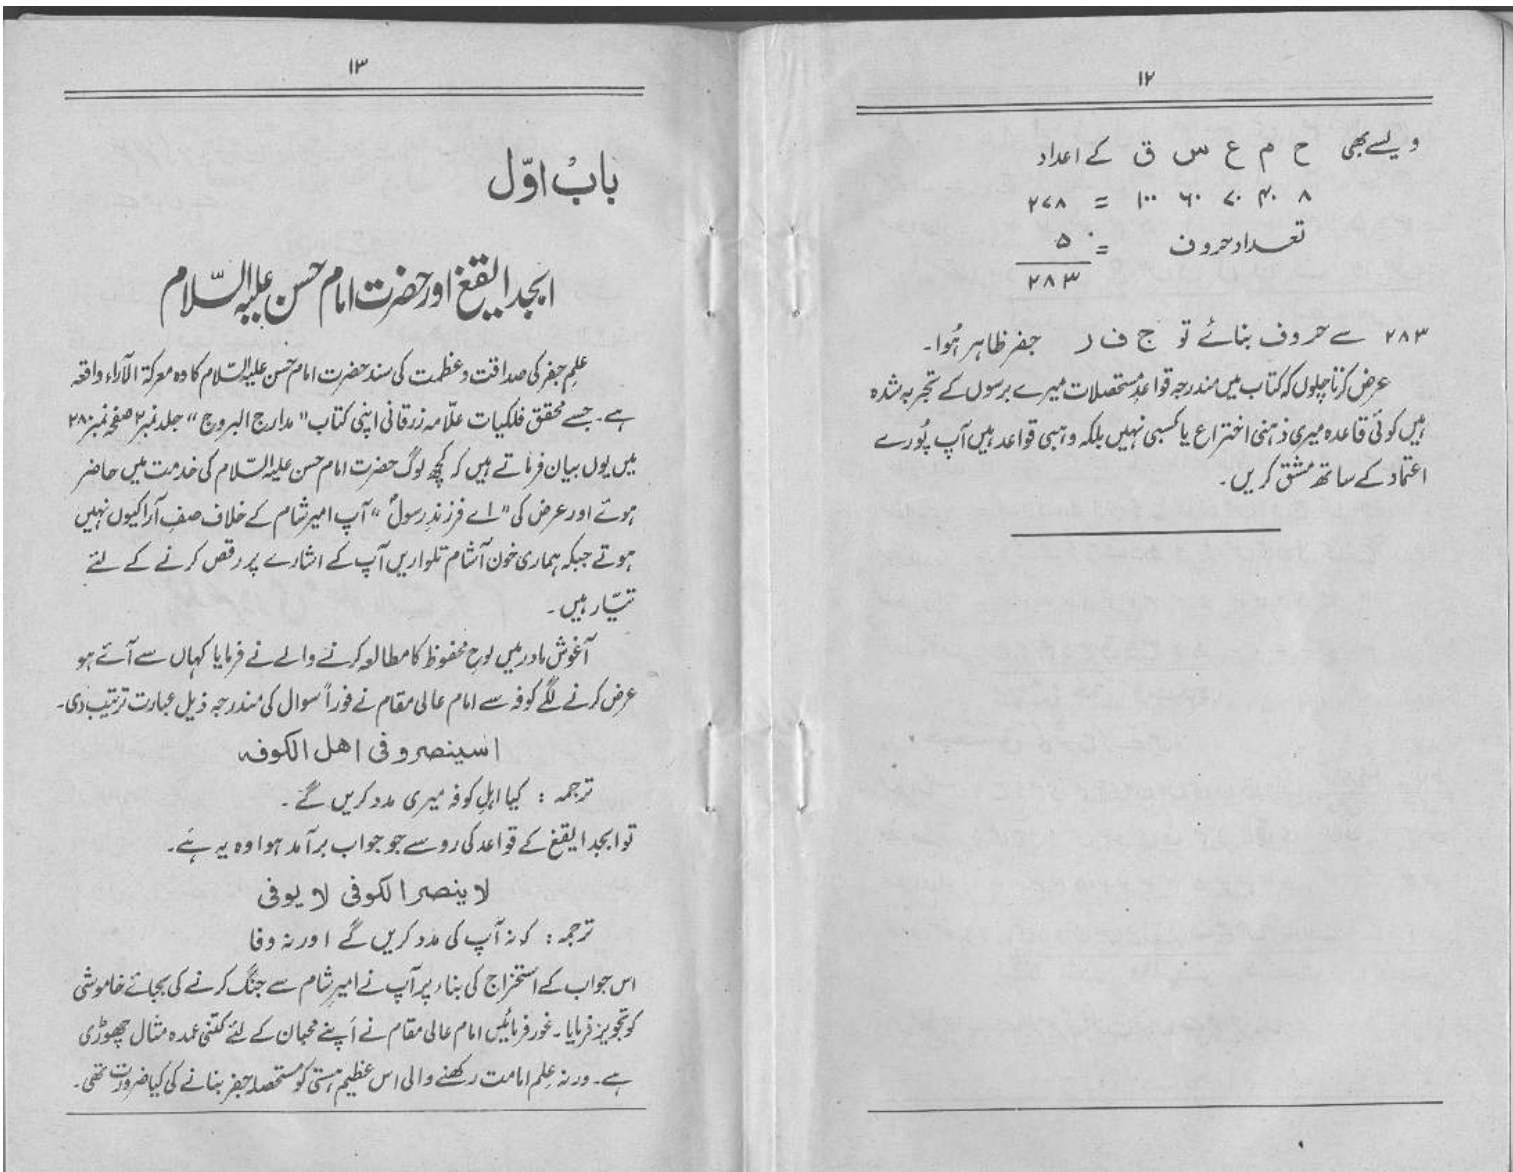 ۱۲
ویسے بھی ح م ع س ق کے اعداد
۸ ۴۰ ۷۰ ۶۰ ۱۰۰ = ۲۷۸
تعداد حروف = ۵
۲۸۳
۲۸۳ سے حروف بنائے تو ج ف ر جفر ظاہر ہُوا۔
عرض کرتا چلوں کہ کتاب میں مندرجہ قواعدِ مستحصلات میرے برسوں کے تجربہ شدہ
ہیں کوئی قاعدہ میری ذہنی اختراع یا کسبی نہیں بلکہ وہبی قواعد ہیں آپ پُورے
اعتماد کے ساتھ مشق کریں۔
۱۳
بابْ اوّل
ابجد ایقغ اور حضرت امام حسن علیہ السّلام
علمِ جفر کی صداقت و عظمت کی سند حضرت امام حسن علیہ السّلام کا وہ معرکۃ الآراء واقعہ
ہے۔ جسے محقق فلکیات علّامہ زرقانی اپنی کتاب "مدارج البروج" جلد نمبر ۲ صفحہ نمبر ۲۸۰
میں یوں بیان فرماتے ہیں کہ کچھ لوگ حضرت امام حسن علیہ السّلام کی خدمت میں حاضر
ہوئے اور عرض کی "اے فرزندِ رسولؐ" آپ امیرِ شام کے خلاف صف آرا کیوں نہیں
ہوتے جبکہ ہماری خون آشام تلواریں آپ کے اشارے پر رقص کرنے کے لئے
تیّار ہیں۔
آغوشِ مادر میں لوحِ محفوظ کا مطالعہ کرنے والے نے فرمایا کہاں سے آئے ہو
عرض کرنے لگے کوفہ سے امام عالی مقام نے فوراً سوال کی مندرجہ ذیل عبارت ترتیب دی۔
اسینصروفی اھل الکوفہ
ترجمہ : کیا اہلِ کوفہ میری مدد کریں گے۔
تو ابجد ایقغ کے قواعد کی رو سے جو جواب برآمد ہوا وہ یہ ہَے۔
لا ینصر الکوفی لا یوفی
ترجمہ : کہ نہ آپ کی مدد کریں گے اور نہ وفا
اس جواب کے استخراج کی بناء پر آپ نے امیرِ شام سے جنگ کرنے کی بجائے خاموشی
کو تجویز فرمایا۔ غور فرمائیں امام عالی مقام نے اَپنے محبان کے لئے کتنی عمدہ مثال چھوڑی
ہے۔ ورنہ علمِ امامت رکھنے والی اس عظیم ہستی کو مستحصلہ جفر بنانے کی کیا ضرورت تھی۔